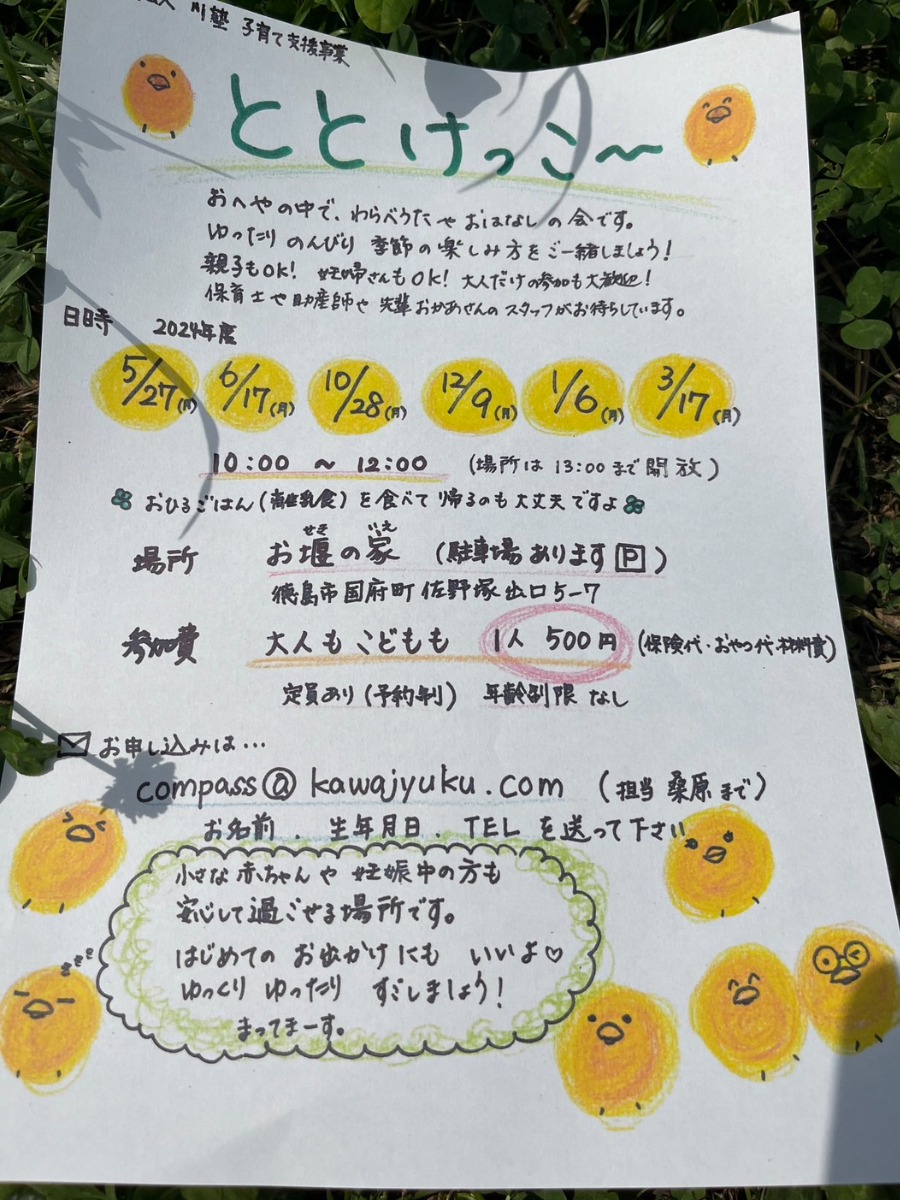 川塾 子育て支援事業
ととけっこ〜
おへやの中で、わらべうたや おはなしの会です。
ゆったり のんびり 季節の楽しみ方をご一緒しましょう!
親子もOK! 妊婦さんもOK! 大人だけの参加も大歓迎!
保育士や助産師や 先輩おかあさんのスタッフがお待ちしています。
日時 2024年度
5/27(月) 6/17(月) 10/28(月) 12/9(月) 1/6(月) 3/17(月)
10:00 〜 12:00 (場所は 13:00まで開放)
おひるごはん(離乳食)を食べて帰るのも大丈夫ですよ
せき いえ
場所 お堰の家 (駐車場あります P)
徳島市国府町佐野塚出口5-7
参加費 大人も こどもも 1人 500円 (保険代・おやつ代・材料費)
定員あり(予約制) 年齢制限 なし
お申し込みは…
compass@kawajyuku.com (担当 桑原まで)
お名前 . 生年月日 . TEL を送って下さい
小さな赤ちゃんや 妊娠中の方も
安心して過ごせる場所です。
はじめての お出かけにも いいよ♡
ゆっくり ゆったり すごしましょう!
まってまーす。
zzz